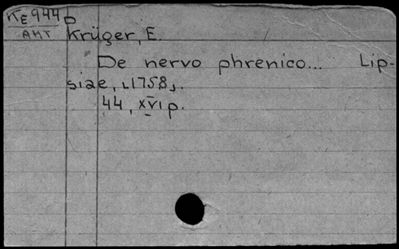 KE944b
AHT
Krüger, E.
De nervo phrenico... Lip-
siae, ⌞1758⌟.
44, XVI p.